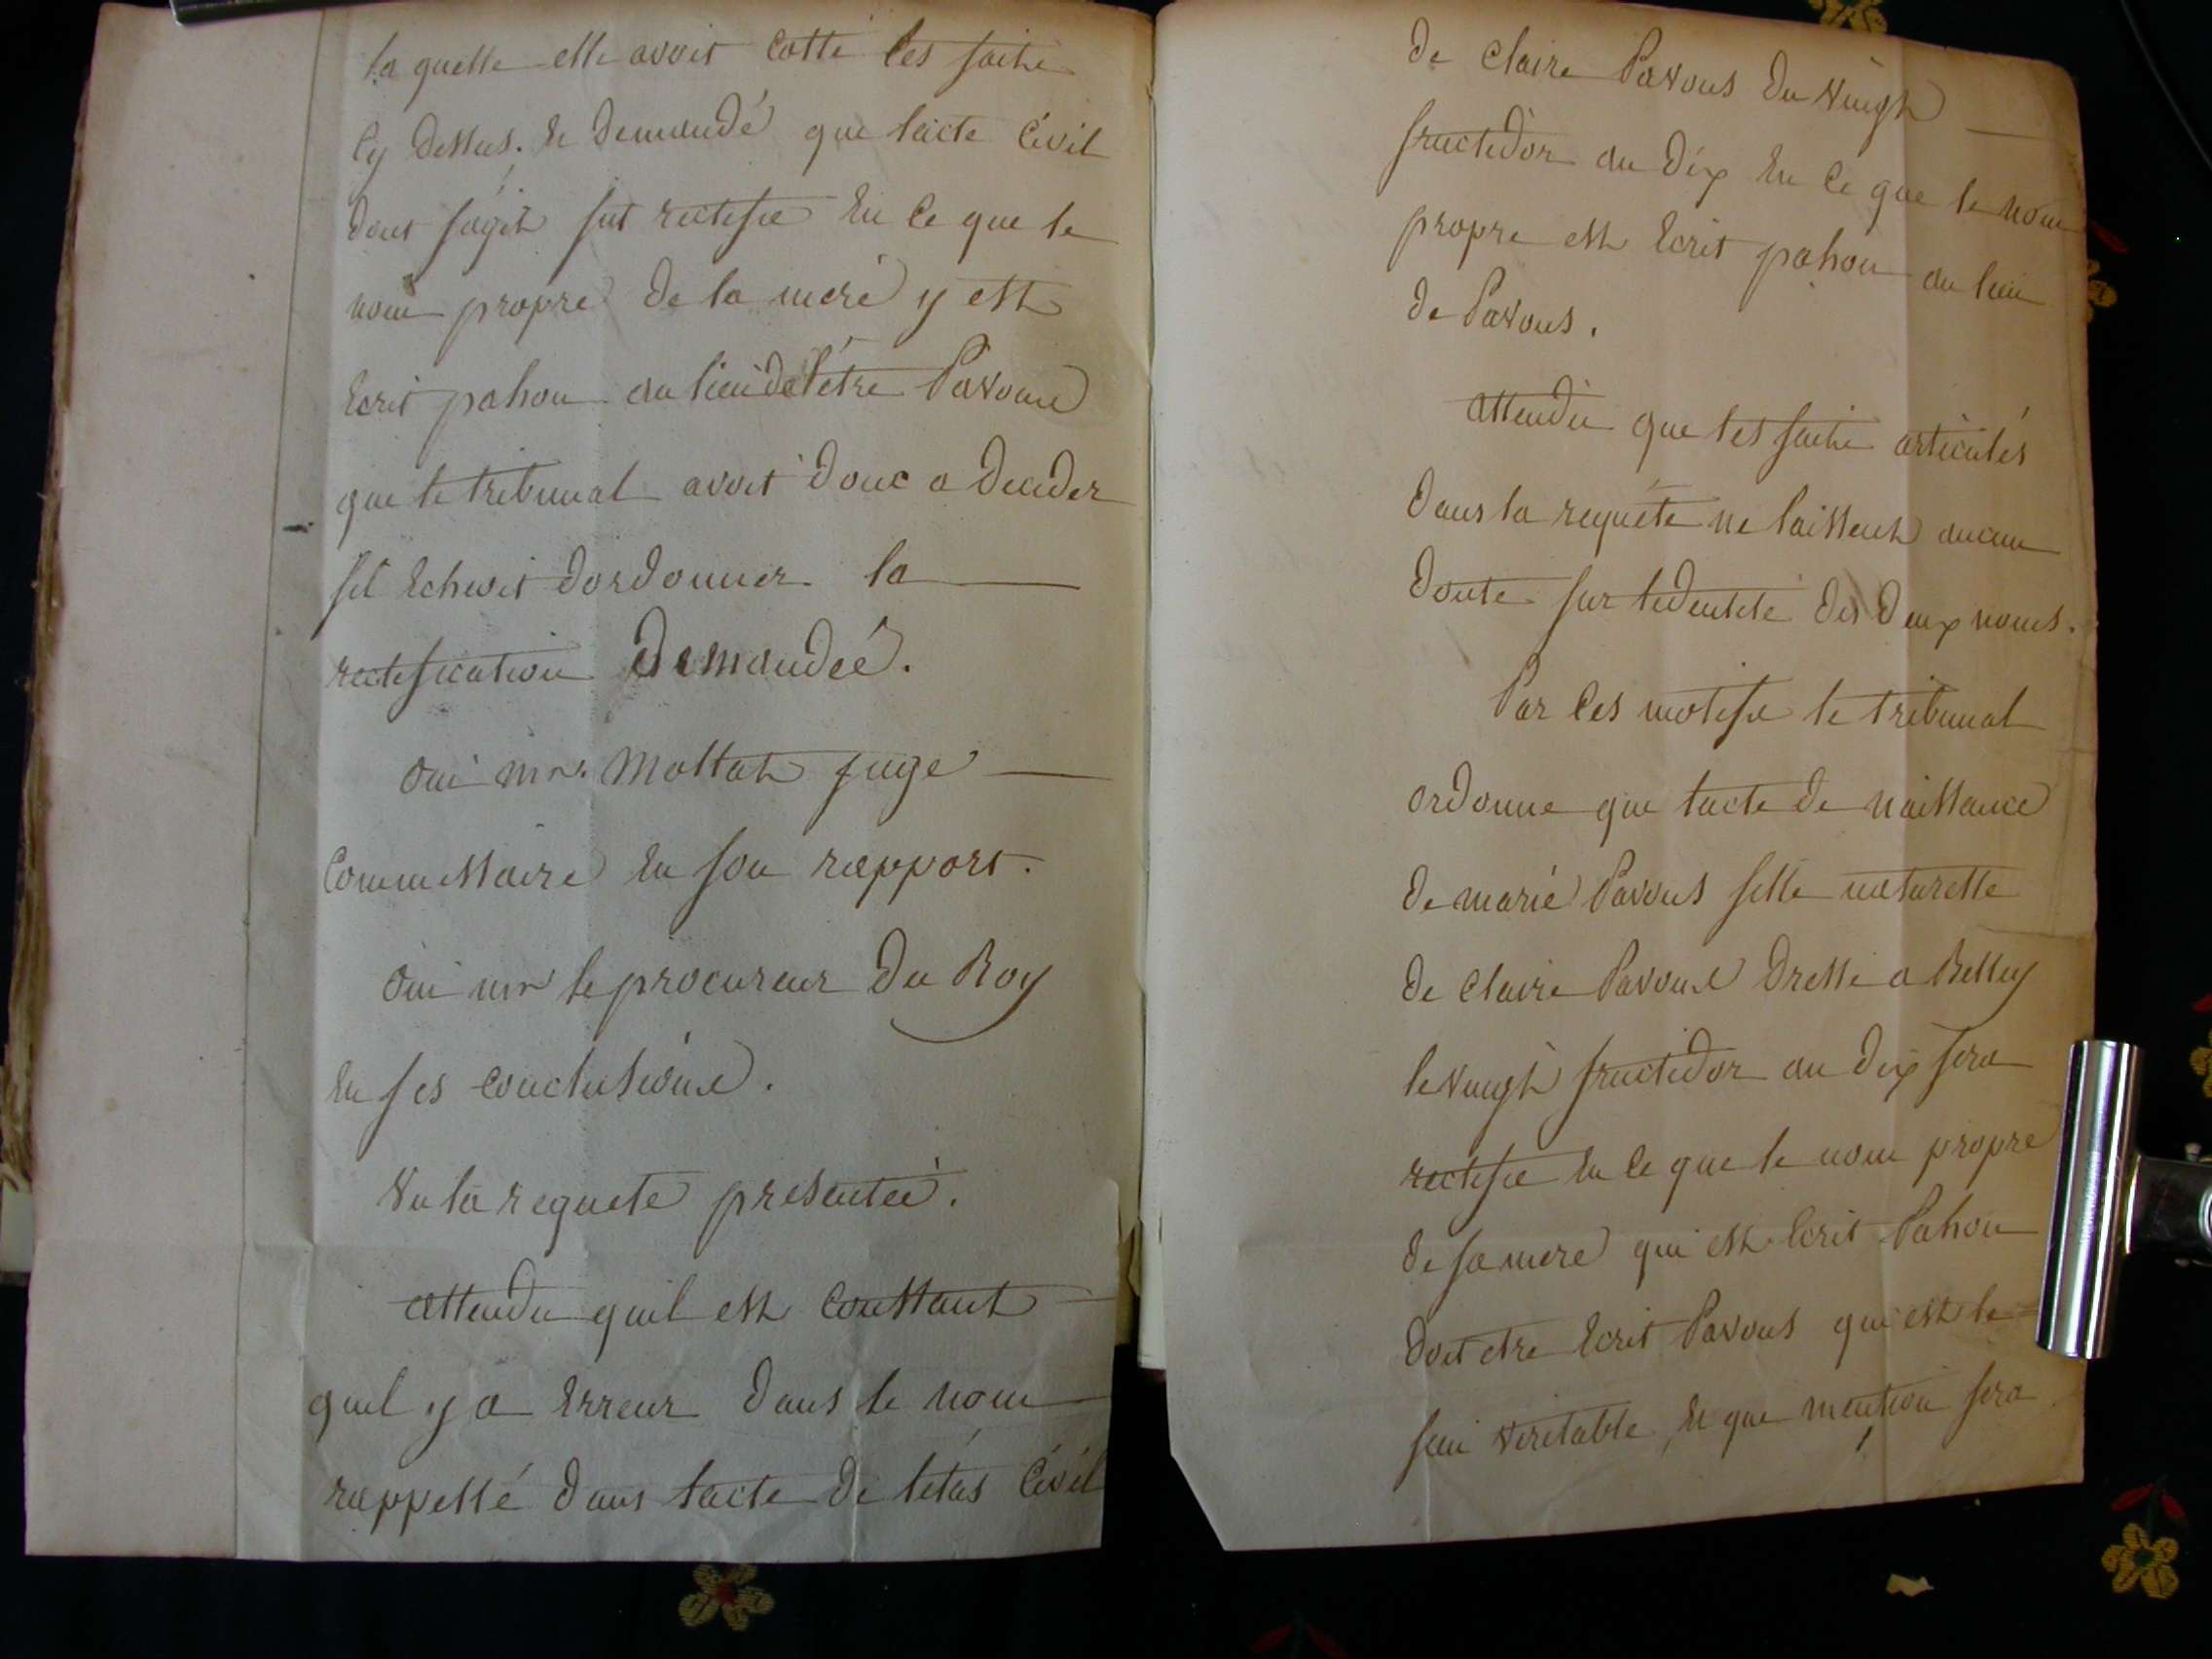 la quelle elle avoit cotté les faits
Cy dessus. et demandé que lacte Civil
dont sagit fut rectifié en ce que le
nom propre de la mere y est
Ecrit pahon au lieu de l'étre Pavous
que le tribunal avoit donc a decider
sil Echeoit dordonner la
rectification Demandée.
oui mr. Mollat juge
Commissaire en son rapport.
oui mr le procureur du Roy
en ses conclusions.
Vu la requete presentée.
attendu quil est Constant
quil y a Erreur dans le nom
rappellé dans lacte de letat Civil
de Claire Pavous du vingt
fructidor an dix en ce que le nom
propre est Ecrit pahon au lieu
de Pavous.
attendu que les faits articulés
dans la requéte ne laissent aucun
doute sur lidentité des deux noms.
Par ces motifs le tribunal
ordonne que lacte de naissance
de marie Pavous fille naturelle
de Claire Pavous dressé a Belley
le vingt fructidor an dix sera
rectifié en ce que le nom propre
de sa mere qui est Ecrit Pahon
doit etre Ecrit Pavous qui est le
sien veritable, et que mention sera